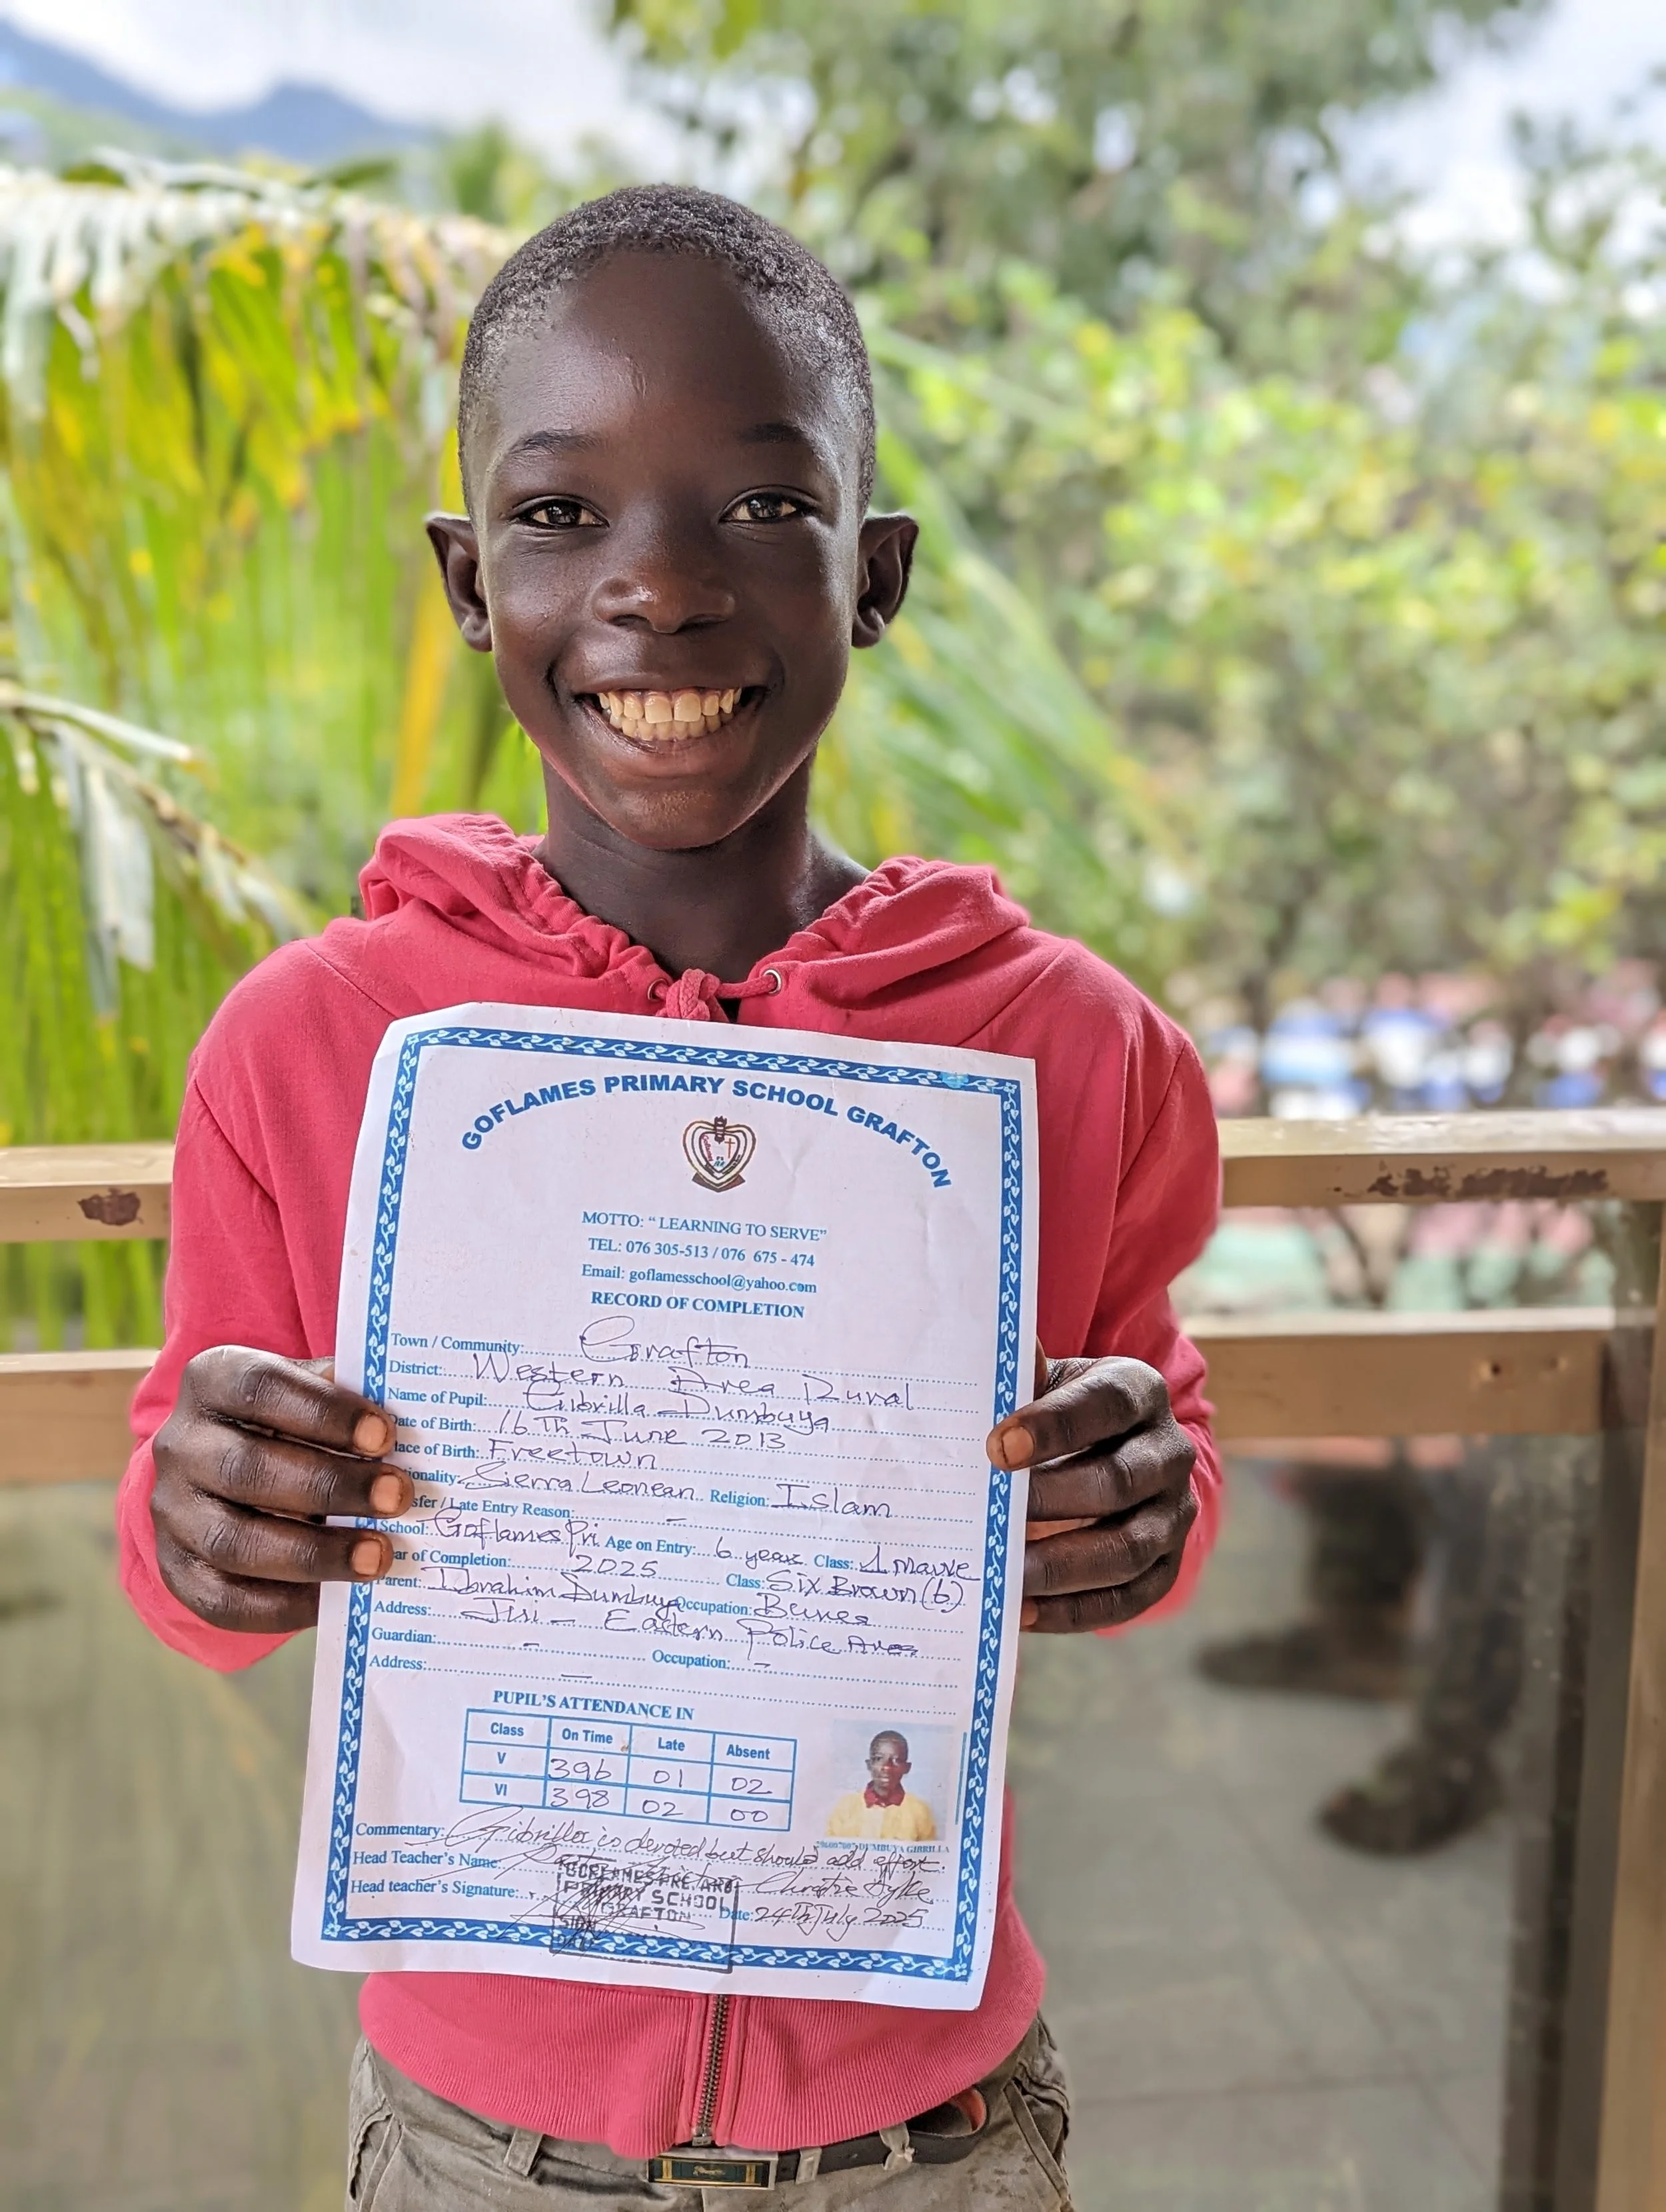 GOFLAMES PRIMARY SCHOOL GRAFTON
MOTTO: “ LEARNING TO SERVE”
TEL: 076 305-513 / 076 675 - 474
Email: goflamesschool@yahoo.com
RECORD OF COMPLETION
Town / Community: Grafton
District: Western Area Rural
Name of Pupil: Gibrilla Dumbuya
ate of Birth: 16th June 2013
lace of Birth: Freetown
ionality: Sierra Leonean Religion: Islam
sfer / Late Entry Reason: -
School: Goflames Pri Age on Entry: 6 years Class: 1 Mauve
ar of Completion: 2025 Class: Six Brown (6)
Parent: Ibrahim Dumbuya Occupation:
Address: Eastern Police Area
Guardian: - Occupation: -
Address: -
PUPIL'S ATTENDANCE IN
Class On Time Late Absent
V 396 01 02
VI 398 02 00
DUMBUYA GIBRILLA
Commentary: Gibrilla is devoted but should add effort.
Head Teacher's Name:
Head teacher's Signature: Date: 24th July 2025
GOFLAMES PRE AND
PRIMARY SCHOOL
GRAFTON
SIGN